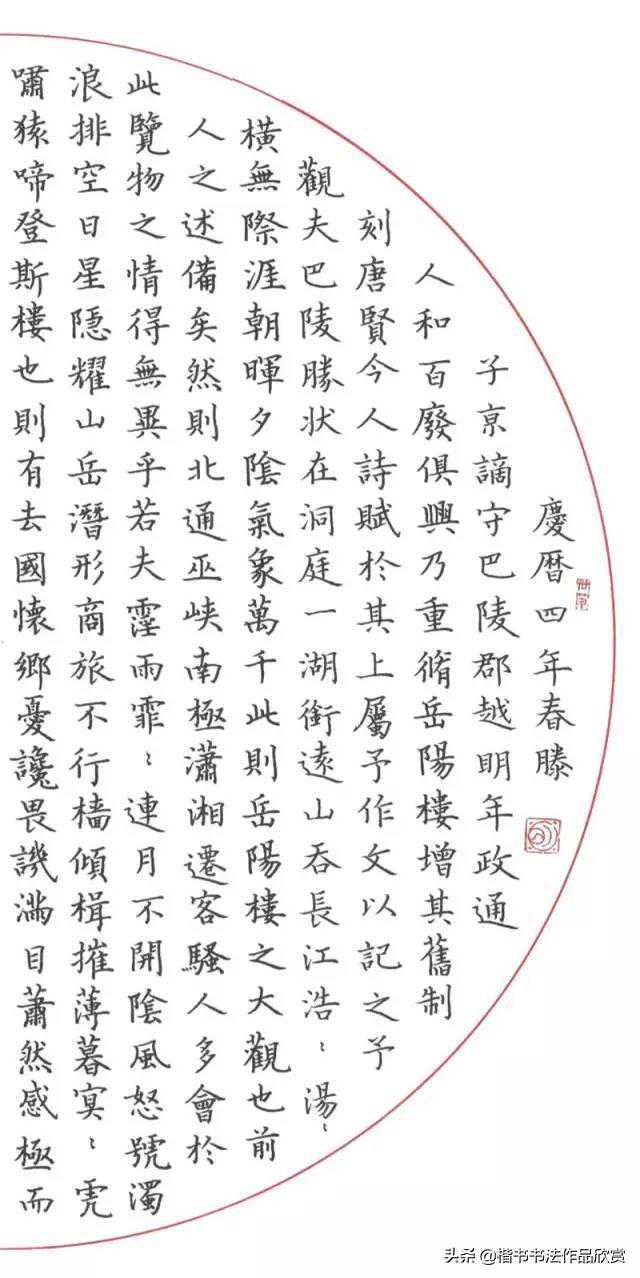 慶曆四年春滕
子京謫守巴陵郡越明年政通
人和百廢俱興乃重脩岳陽樓增其舊制
刻唐賢今人詩賦於其上屬予作文以記之予
觀夫巴陵勝狀在洞庭一湖銜遠山吞長江浩〻湯〻
橫無際涯朝暉夕陰氣象萬千此則岳陽樓之大觀也前
人之述備矣然則北通巫峽南極瀟湘遷客騷人多會於
此覽物之情得無異乎若夫霪雨霏〻連月不開陰風怒號濁
浪排空日星隱耀山岳潛形商旅不行檣傾楫摧薄暮冥〻虎
嘯猿啼登斯樓也則有去國懷鄉憂讒畏譏滿目蕭然感極而
头条 @楷书书法作品欣赏